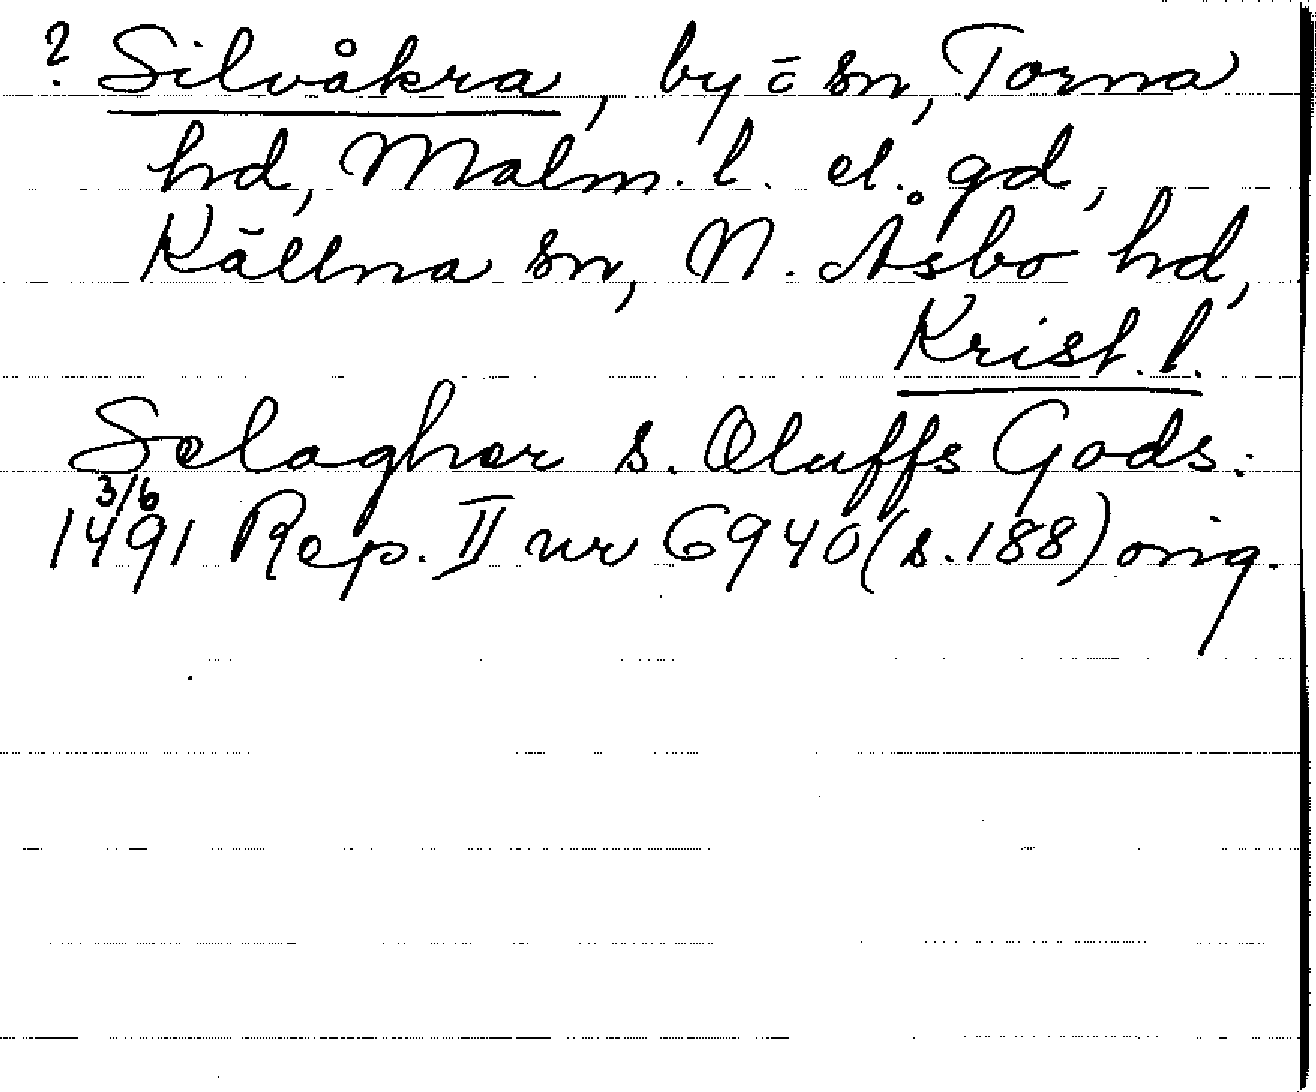 ? Silvåkra, by o sn, Torna
hd, Malm. l. el. gd,
Källna sn, N. Åsbo hd,
Krist. l.
Selagher s. Oluffs Gods:
3/6
1491 Rep. II nr 6940 (s. 188) orig.